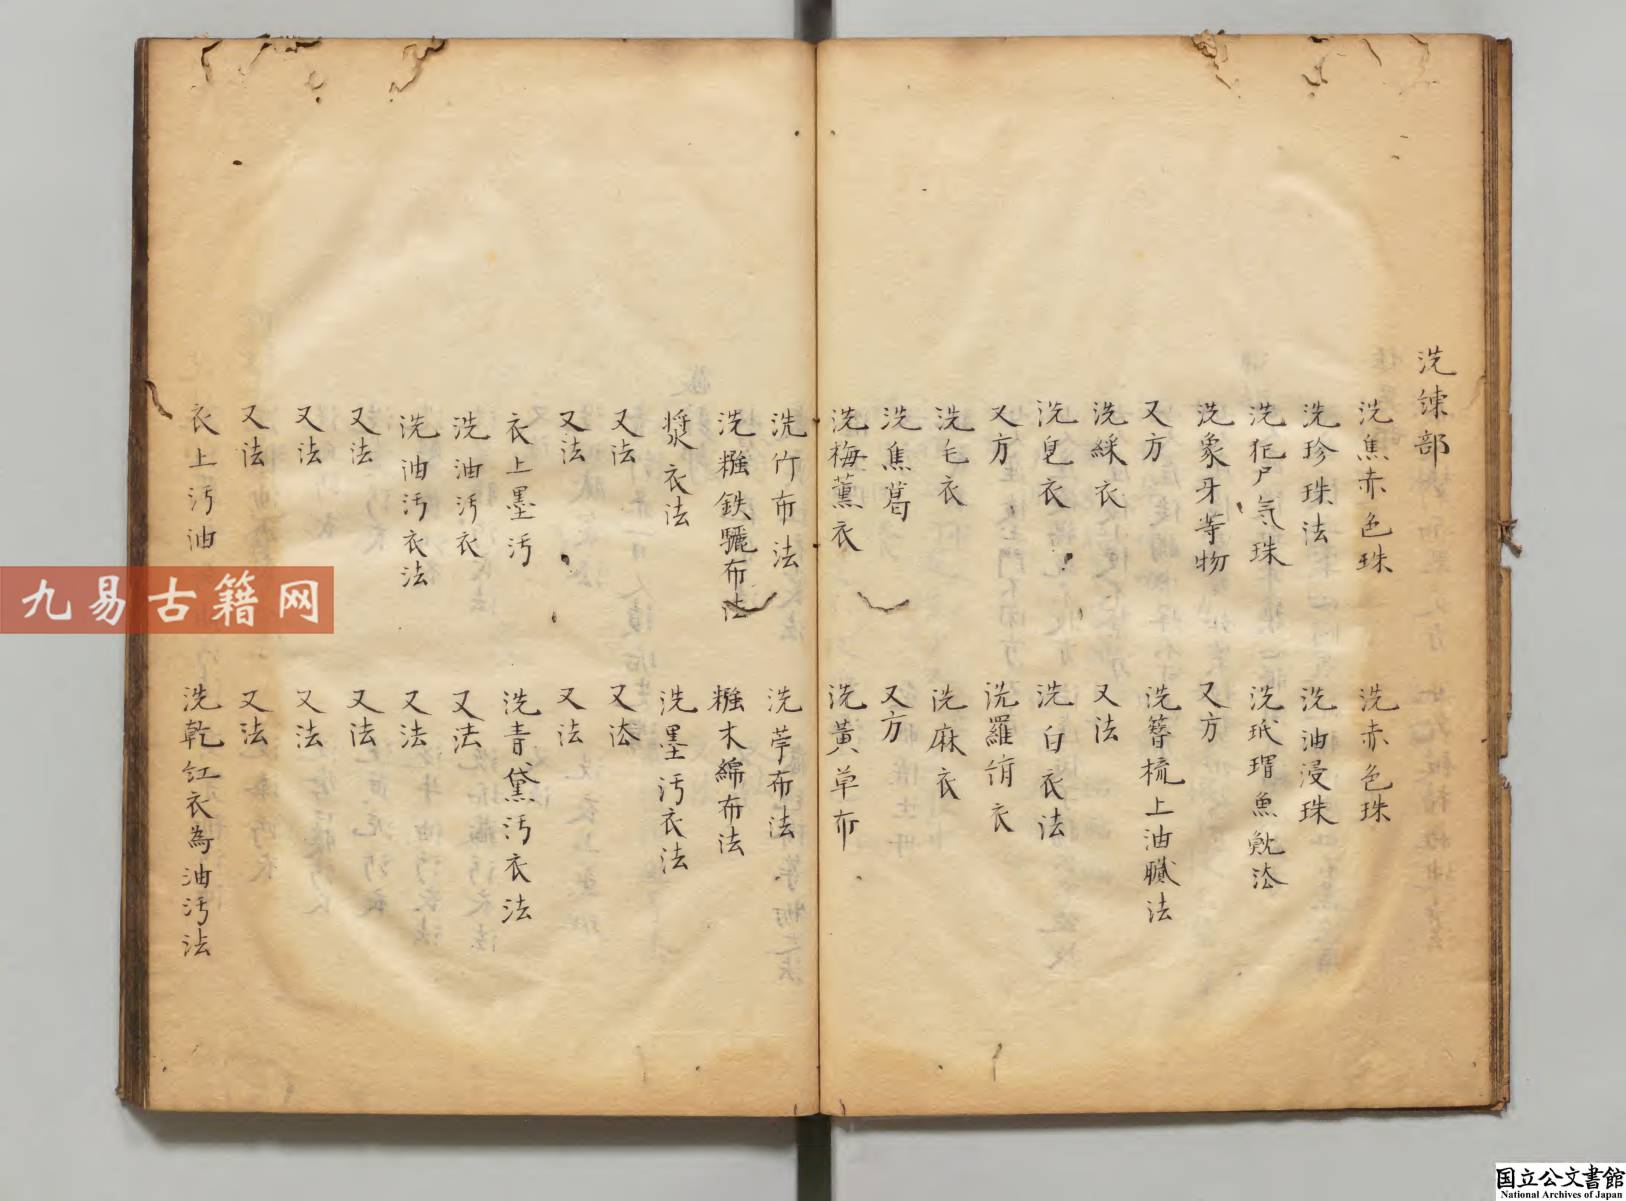 洗練部
洗焦赤色珠　洗赤色珠
洗珍珠法　洗油浸珠
洗犯尸气珠　洗玳瑁魚魫法
洗象牙等物　又方
又方　洗簪梳上油膩法
洗綵衣　又法
洗皂衣　洗白衣法
又方　洗羅絹衣
洗毛衣　洗麻衣
洗焦葛　又方
洗梅薰衣　洗黃草布
洗竹布法　洗苧布法
洗糨鉄驪布法　糨木綿布法
漿衣法　洗墨污衣法
又法　又法
又法　又法
衣上墨污　洗青黛污衣法
洗油污衣　又法
洗油污衣法　又法
又法　又法
又法　又法
又法　又法
衣上污油　洗乾紅衣為油污法
九易古籍网
国立公文書館
National Archives of Japan